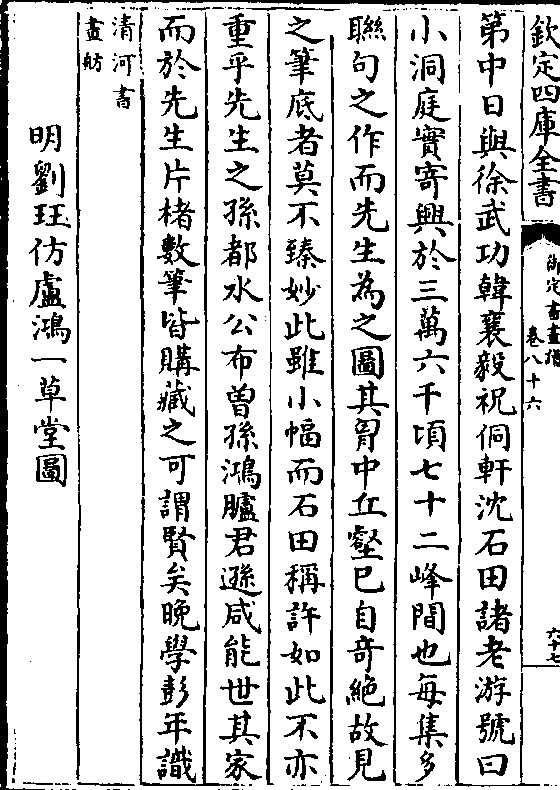 欽定四庫全書
御定書畫譜
卷八十六
六十七
第中日與徐武功韓襄毅祝侗軒沈石田諸老游號曰
小洞庭實寄興於三萬六千頃七十二峰間也每集多
聯句之作而先生為之圖其胷中丘壑已自奇絶故見
之筆底者莫不臻妙此雖小幅而石田稱許如此不亦
重乎先生之孫都水公布曽孫鴻臚君遜咸能世其家
而於先生片楮數筆皆購藏之可謂賢矣晚學彭年識
清河書
畫舫
明劉珏仿盧鴻一草堂圖